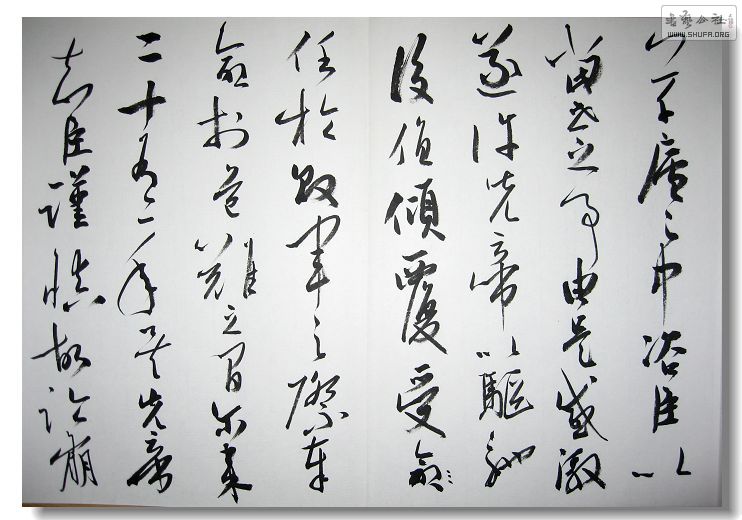 草廬之中咨臣以
當世之事由是感激
遂許先帝以驅馳
後值傾覆受命
任於敗軍之際奉
命於危難之間爾來
二十有一年矣先帝
知臣謹慎故臨崩
書藝公社
WWW.SHUFA.ORG